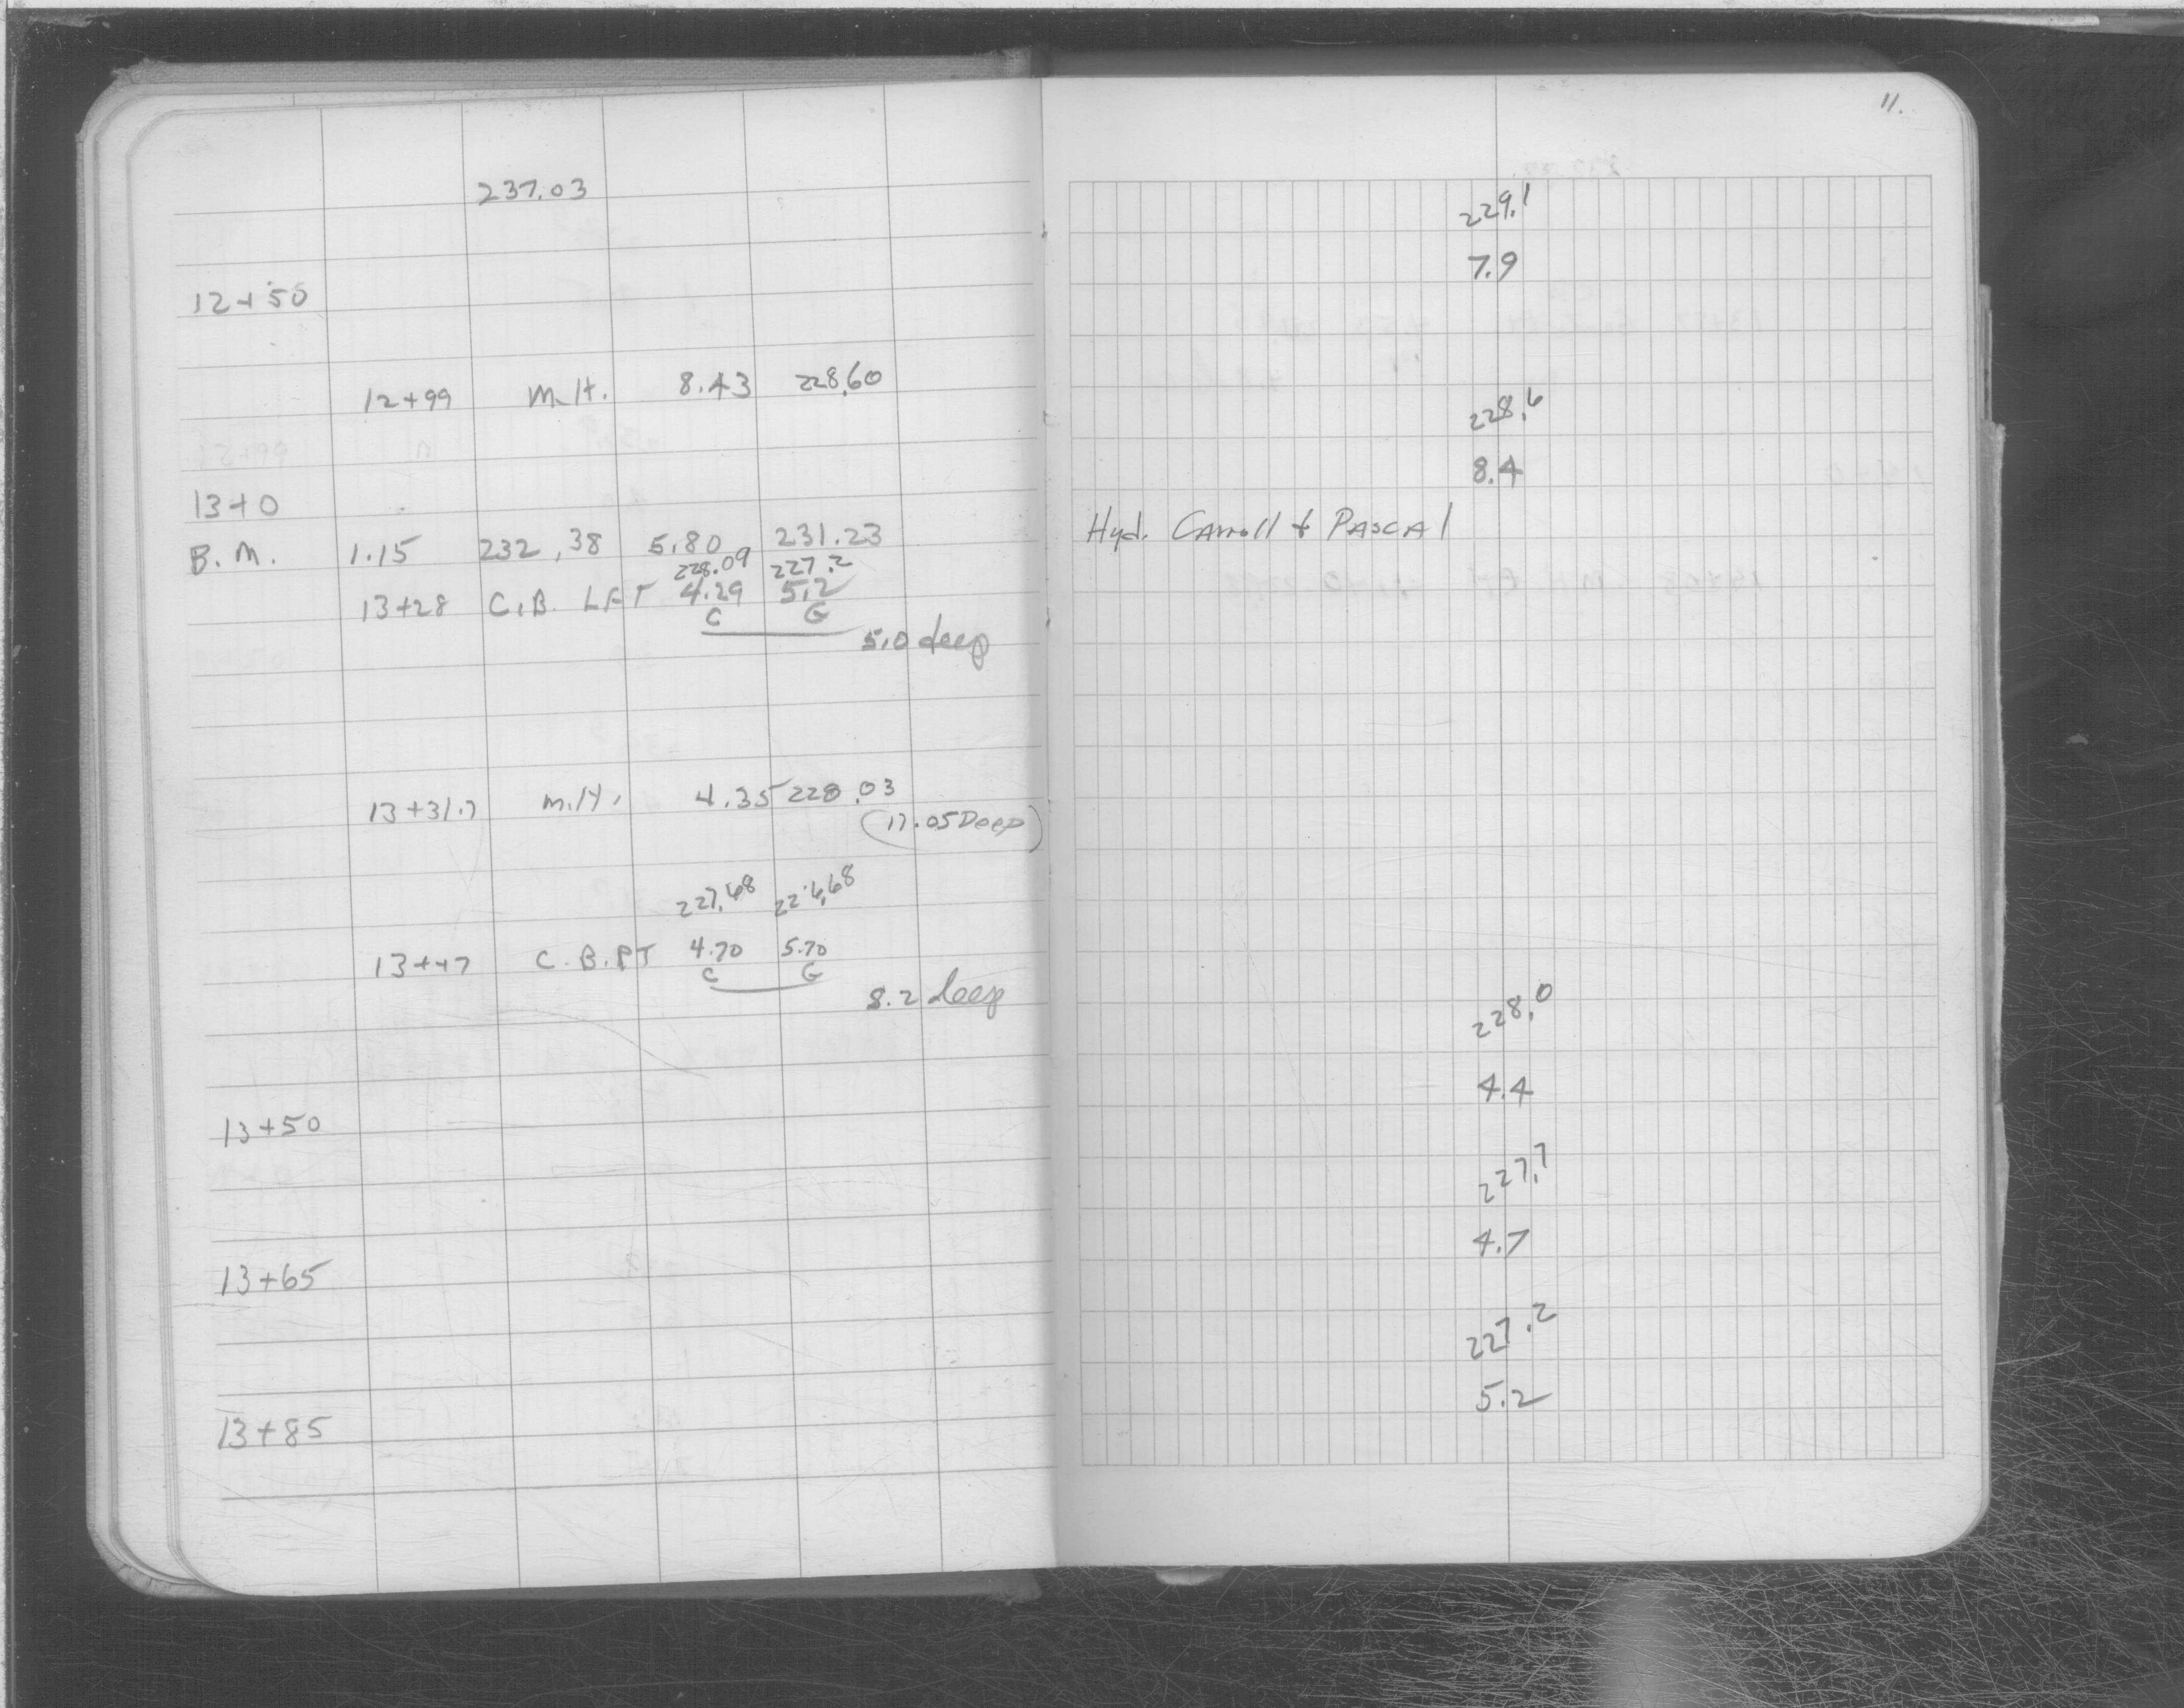 237.03
12+50
12+99 M.H. 8.43 228.60
13+0
B.M. 1.15 232.38 5.80 231.23
228.09 227.2
13+28 C.B. LFT 4.29 5.2
C G
5.0 deep
13+31.7 M.H. 4.35 228.03
(17.05 Deep)
227.68 226.68
13+47 C.B. RT 4.70 5.70
C G
8.2 deep
13+50
13+65
13+85
11.
229.1
7.9
228.6
8.4
Hyd. Carroll & PASCAl
228.0
4.4
227.7
4.7
227.2
5.2